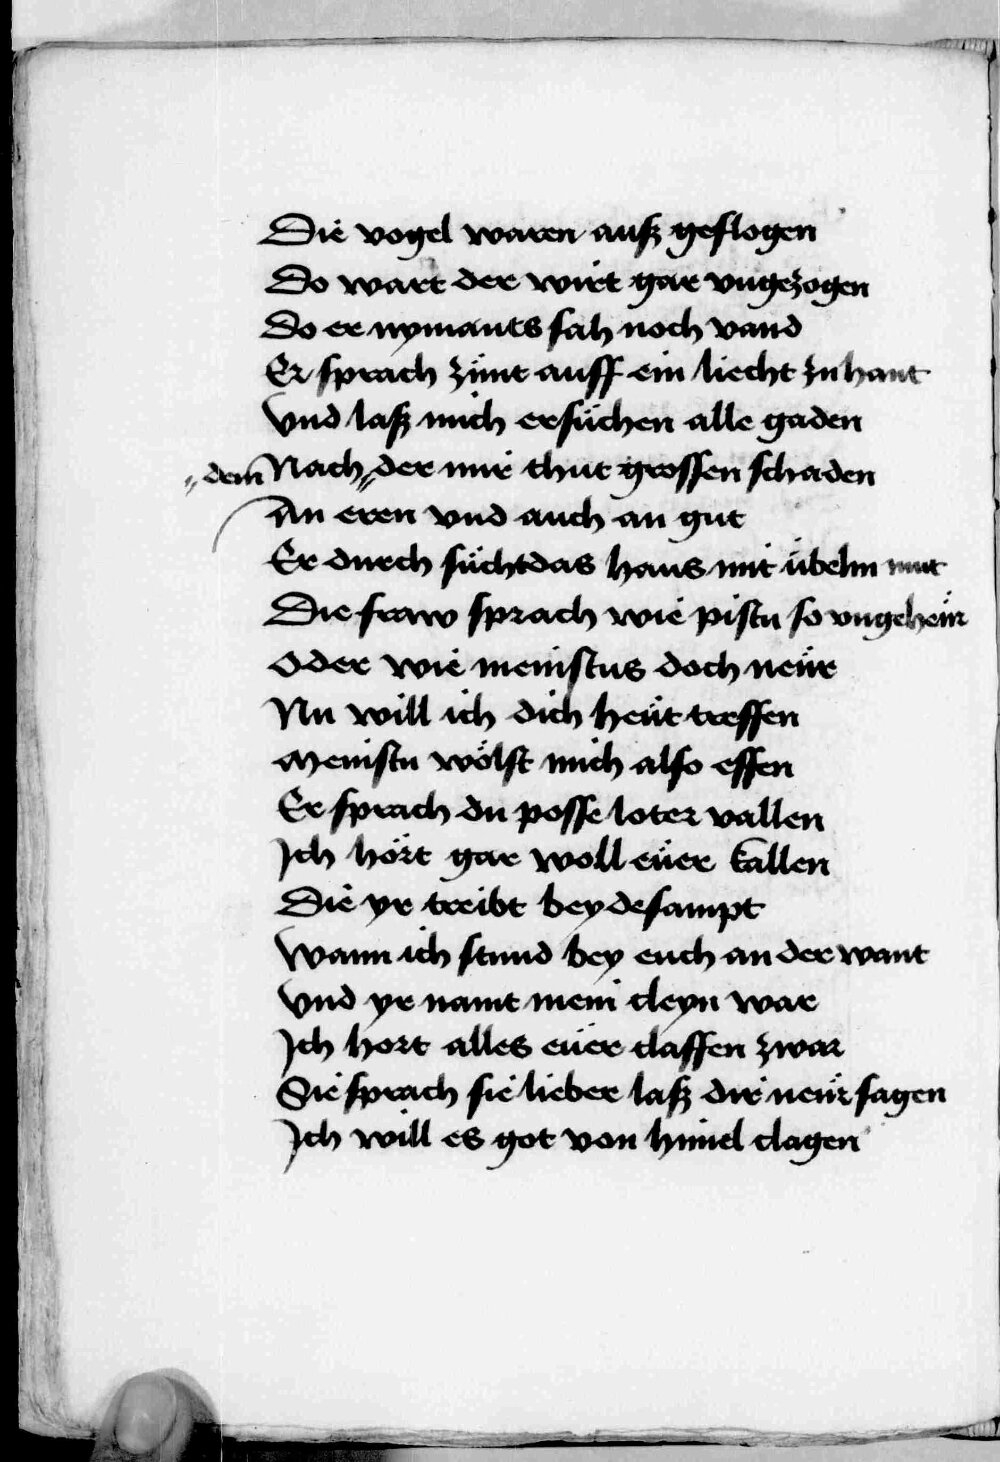 Die vogel waren auß geflogen
Do wart der wirt gar vngezogen
Do er nymants sah noch vand
Er sprach zünt auff ein liecht zuhant
Vnd laß mich ersüchen alle gaden
"dem Nach "der mir thut grossen schaden
An eren vnd auch an gut
Er durch süchtdas haus mit übelm mut
Die fraw sprach wie pistu so vngeheür
Oder wie meinstus doch neür
Nu will ich dich heüt treffen
Meinstu wölst mich also effen
Er sprach du posse loter vallen
Ich hört gar woll eüer kallen
Die yr treibt beydesampt
Wann ich stund bey euch an der want
Vnd yr namt mein cleyn war
Ich hort alles eüer claffen zwar
Sie sprach sie lieber laß dir neür sagen
Ich will es got von himel clagen